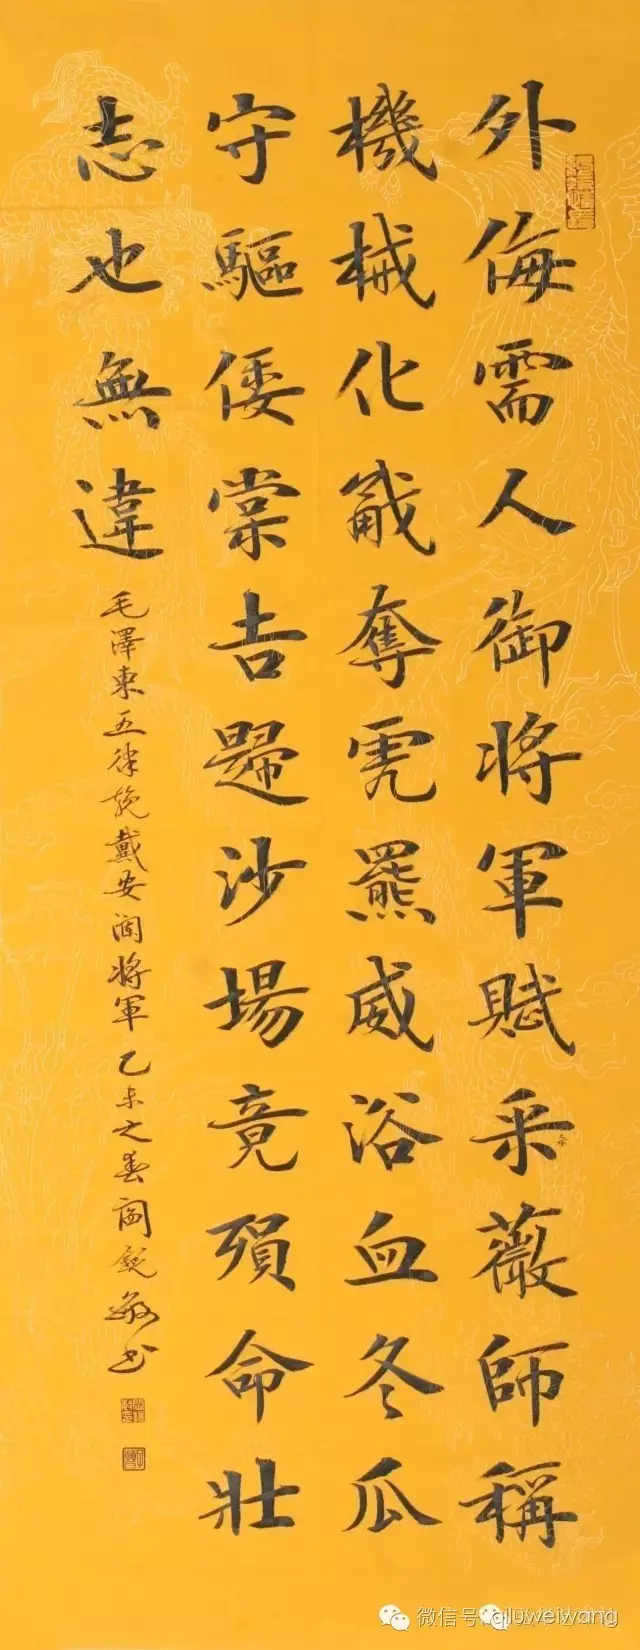 外侮需人御將軍賦采薇師稱
機械化勇奪虎羆威浴血冬瓜
守驅倭棠吉歸沙場竟殞命壯
志也無違
毛澤東五律挽戴安瀾將軍 乙未之春 敏書
微信号: qiluweiwang